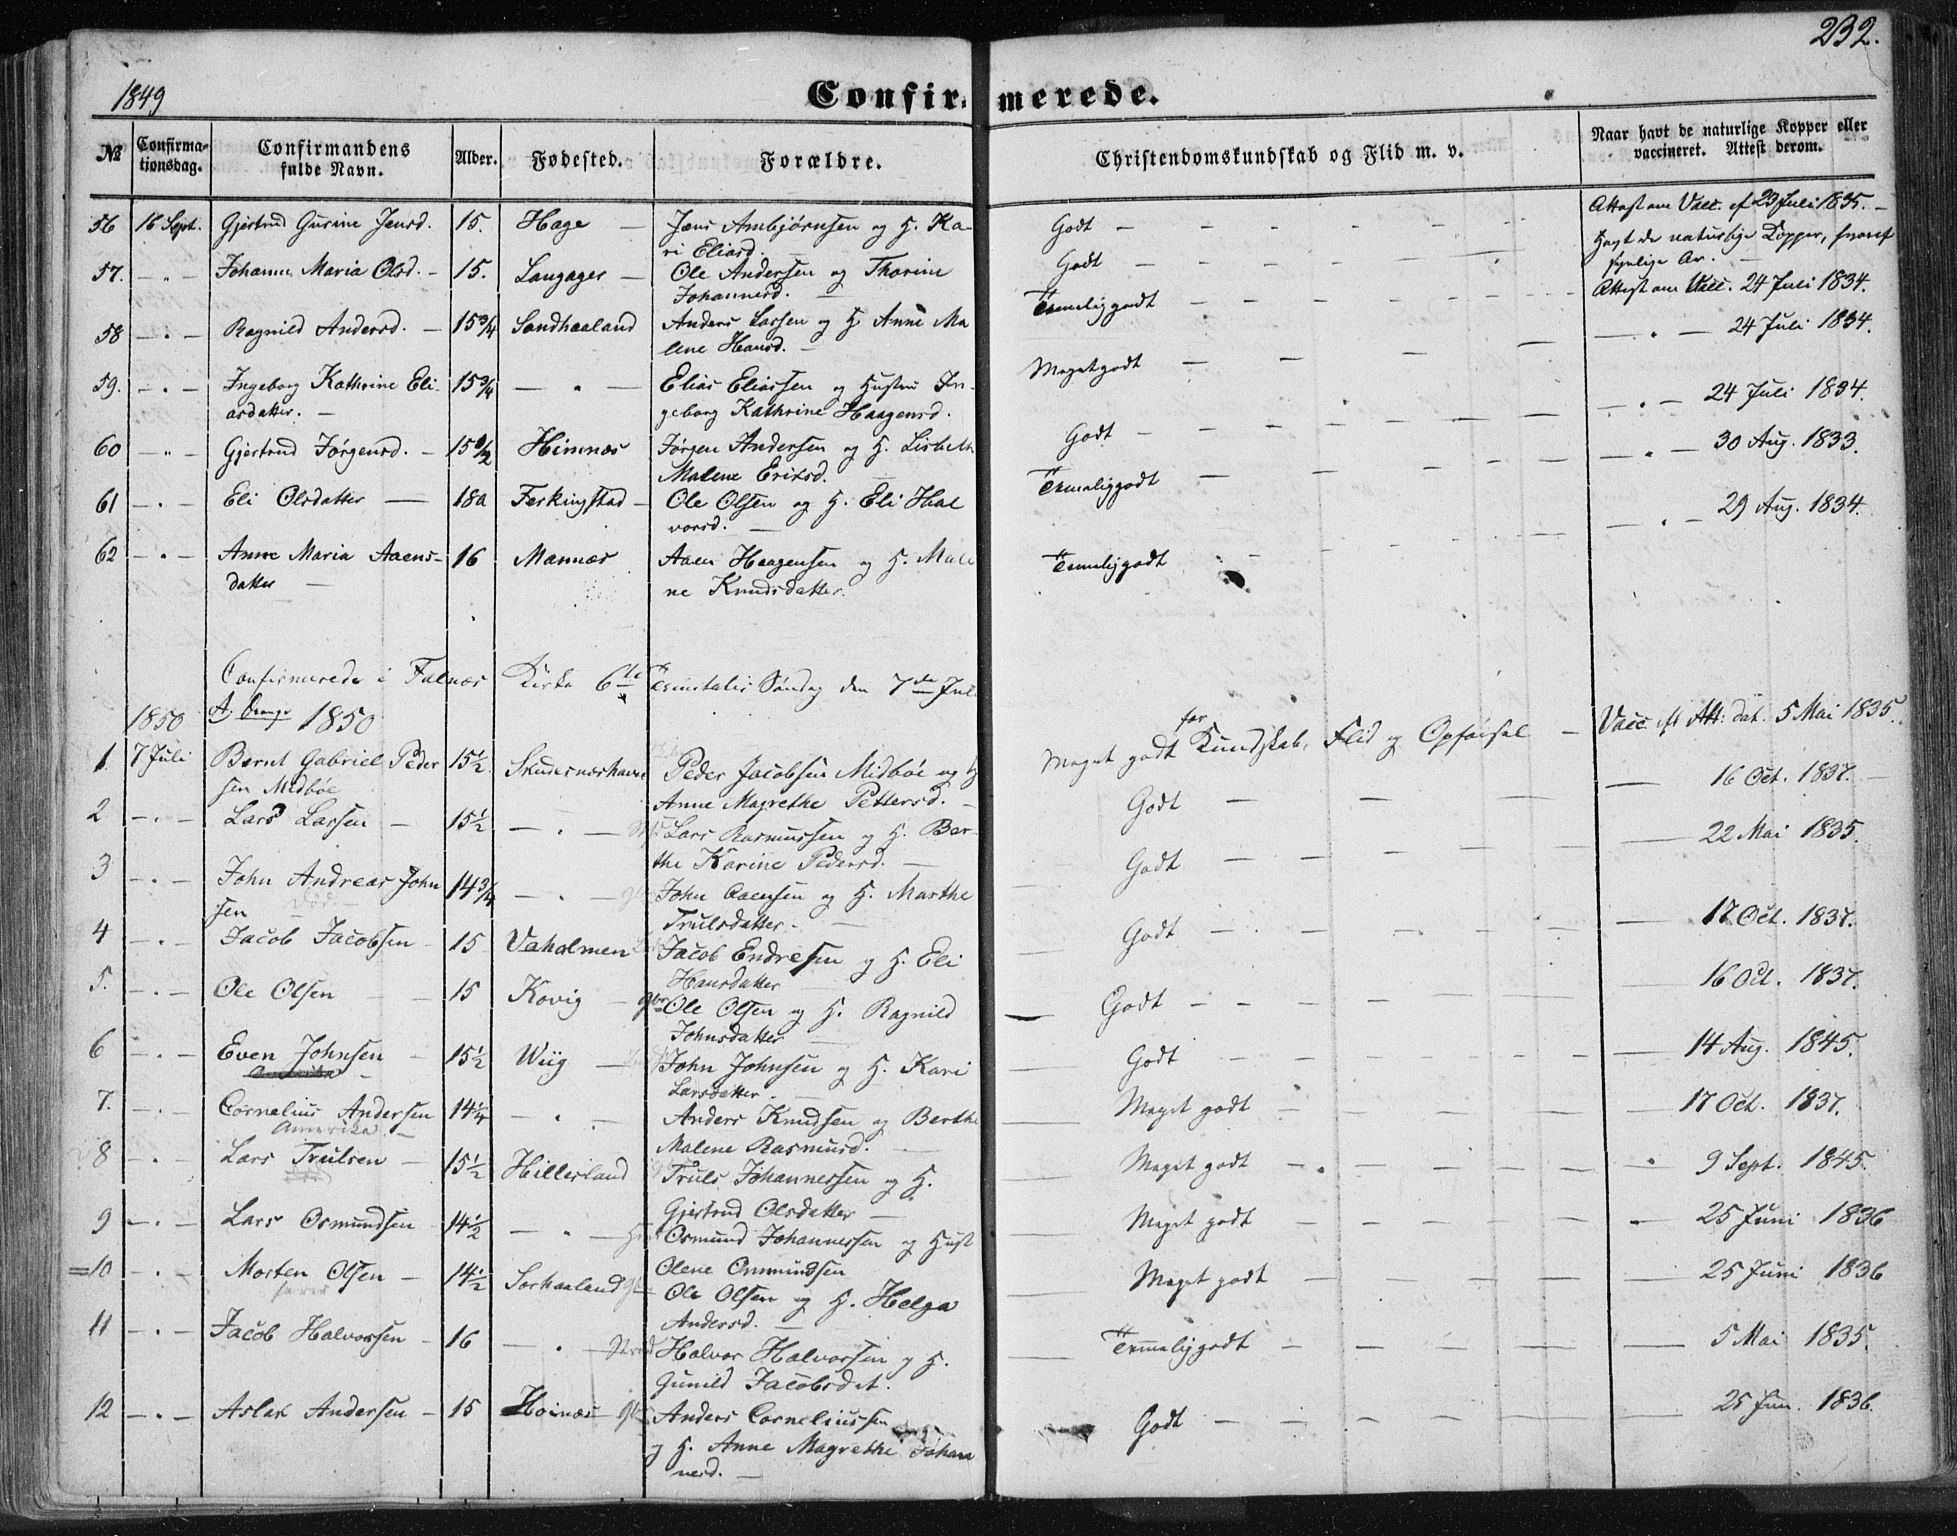 232.
1849
Confirmerede.
№ Confirmationsdag. Confirmandens fulde Navn. Alder. Fødested. Forældre. Christendomskundskab og Flid m. v. Naar havt de naturlige Kopper eller vaccineret. Attest derom.
56 16 Sept. Gjertrud Gurine Jensd. 15. Hage — Jens Ambjørnsen og H. Ka-
ri Eliasd. Godt — Attest om Vacc. af 23 Juli 1835. —
57. — " — Johanne Maria Olsd. — 15. Langager — Ole Andersen og Thorine
Johannesd. — Godt — Havt de naturlige Kopper, hvoraf
synlige Ar. —
58 — " — Ragnild Andersd. — 15 3/4 Sandhaaland Anders Larsen og H. Anne Ma
lene Hansd. — Temmelig godt — Attest om Vacc. 24 Juli 1834.
59. — " — Ingeborg Kathrine Eli-
asdatter. — 15 3/4 — " — Elias Eliassen og Hustru In-
geborg Kathrine Haagensd. Meget godt — — " — 24 Juli 1834.
60 — " — Gjertrud Jørgensd. — Hinnæs Jørgen Andersen og H. Lisbeth
Malene Eriksd. Godt — — " — 24 Juli 1834.
61 — " — Eli Olsdatter — 18 Ferkingstad — Ole Olsen og H. Eli Hal
vorsd. — Temmelig godt — — " — 30 Aug. 1833.
62 — " — Anne Maria Aaens-
datter — 16 Mannæs Aaen Haagensen og H. Male
ne Knudsdatter. Temmelig godt — " — 29 Aug. 1834.
Confirmerede i Falnæs Kirke 6te Trinitatis Søndag den 7de Juli
1850 A. Drenge 1850
1. 7 Juli Bernt Gabriel Peder
sen Midbøe 15 1/2 Skudesnæshavn Peder Jacobsen Midbøe og H
Anne Magrethe Pettersd. — Meget godt for Kundskab, Flid og Opførsel — Vacc. eft. Att: dat. 5 Mai 1835.
2 — " — Lars Larsen — 15 1/2 — " — Lars Rasmussen og H. Ber-
the Karine Pedersd. — Godt — 16 Oct. 1837. —
3 — " — John Andreas John
sen 14 3/4 — " — John Aaensen og H. Marthe
Trulsdatter. — Godt — 22 Mai 1835.
4 — " — Jacob Jacobsen — 15 Vaholmen Jacob Endresen og H. Eli
Hansdatter Godt — 17 Oct. 1837.
5. — " — Ole Olsen — 15 Kovig — Ole Olsen og H. Ragnild
Johnsdatter — Godt — 16 Oct. 1837.
6 — " — Even Johnsen — 15 1/2 Wiig — John Johnsen og H. Kari
Larsdatter. — Godt — 14 Aug. 1845.
7. — " — Cornelius Andersen
Amerika. — 14 1/4 — " — Anders Knudsen og Berthe
Malene Rasmusd. — Meget godt — 17 Oct. 1837.
8 — " — Lars Trulsen — 15 1/2 Hillesland Truls Johannessen og H.
Gjertrud Olsdatter — Meget godt — 9 Sept. 1845.
9 — " — Lars Osmundsen 14 1/2 — " — Osmund Johannessen og Hust
Olene Ommundsen Meget godt — 25 Juni 1836
=10 — " — Morten Olsen — 14 1/2 Sørhaaland Ole Olsen og H. Helga
Andersd. — Meget godt — 25 Juni 1836
11 — " — Jacob Halvorsen — 16 — " — Halvor Halvorsen og H.
Gunild Jacobsdat. Temmelig godt — 5 Mai 1835.
12 — " — Aslak Andersen — 15 Høinæs — Anders Corneliussen
og H. Anne Magrethe Johan
nesd. — Godt — 25 Jun. 1836.